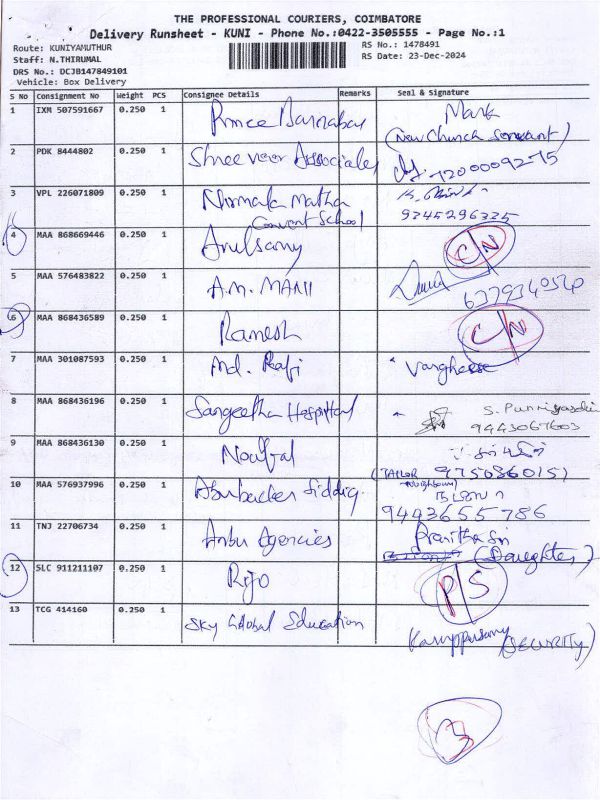 THE PROFESSIONAL COURIERS, COIMBATORE
Delivery Runsheet - KUNI - Phone No.:0422-3505555 - Page No.:1
Route: KUNIYAMUTHUR
Staff: N.THIRUMAL
DRS No.: DCJB147849101
Vehicle: Box Delivery
RS No.: 1478491
RS Date: 23-Dec-2024
S No Consignment No Weight PCS Consignee Details Remarks Seal & Signature
1 IXM 507591667 0.250 1 Prince Barnabas Mark
(New Church Servant)
2 PDK 8444802 0.250 1 Shree veer Associates 7200009275
3 VPL 226071809 0.250 1 Nirmala Matha
Convent School 9245296325
4 MAA 868669446 0.250 1 Arulsamy C/N
5 MAA 576483822 0.250 1 A.M. MANI 6379340540
6 MAA 868436589 0.250 1 Ramesh C/N
7 MAA 301087593 0.250 1 Md. Rafi Varghese
8 MAA 868436196 0.250 1 Sangeetha Hospital S.
9443067603
9 MAA 868436130 0.250 1 Noufal
(TAILOR 975086015)
10 MAA 576937996 0.250 1 Abubacker Siddiq. (Neighbour)
9443655786
11 TNJ 22706734 0.250 1 Anbu Agencies
(Daughter)
12 SLC 911211107 0.250 1 Rijo P/S
13 TCG 414160 0.250 1 Sky Global Education
Karuppusamy (SECURITY)
3